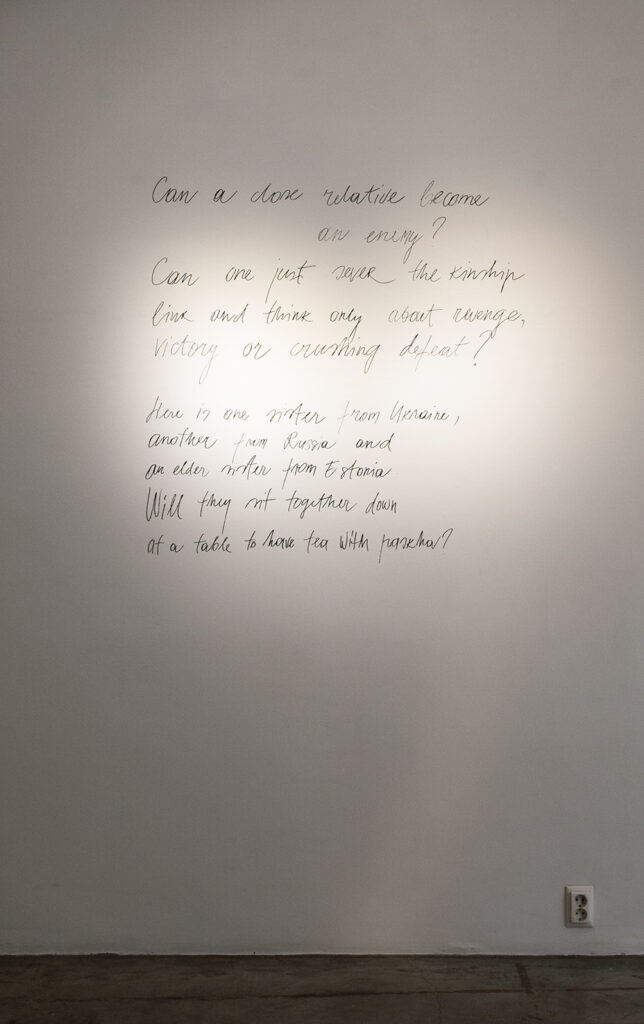 Can a close relative become
an enemy?
Can one just sever the kinship
link and think only about revenge,
victory or crushing defeat?
Here is one sister from Ukraine,
another from Russia and
an elder sister from Estonia
Will they sit together down
at a table to have tea with paskha?